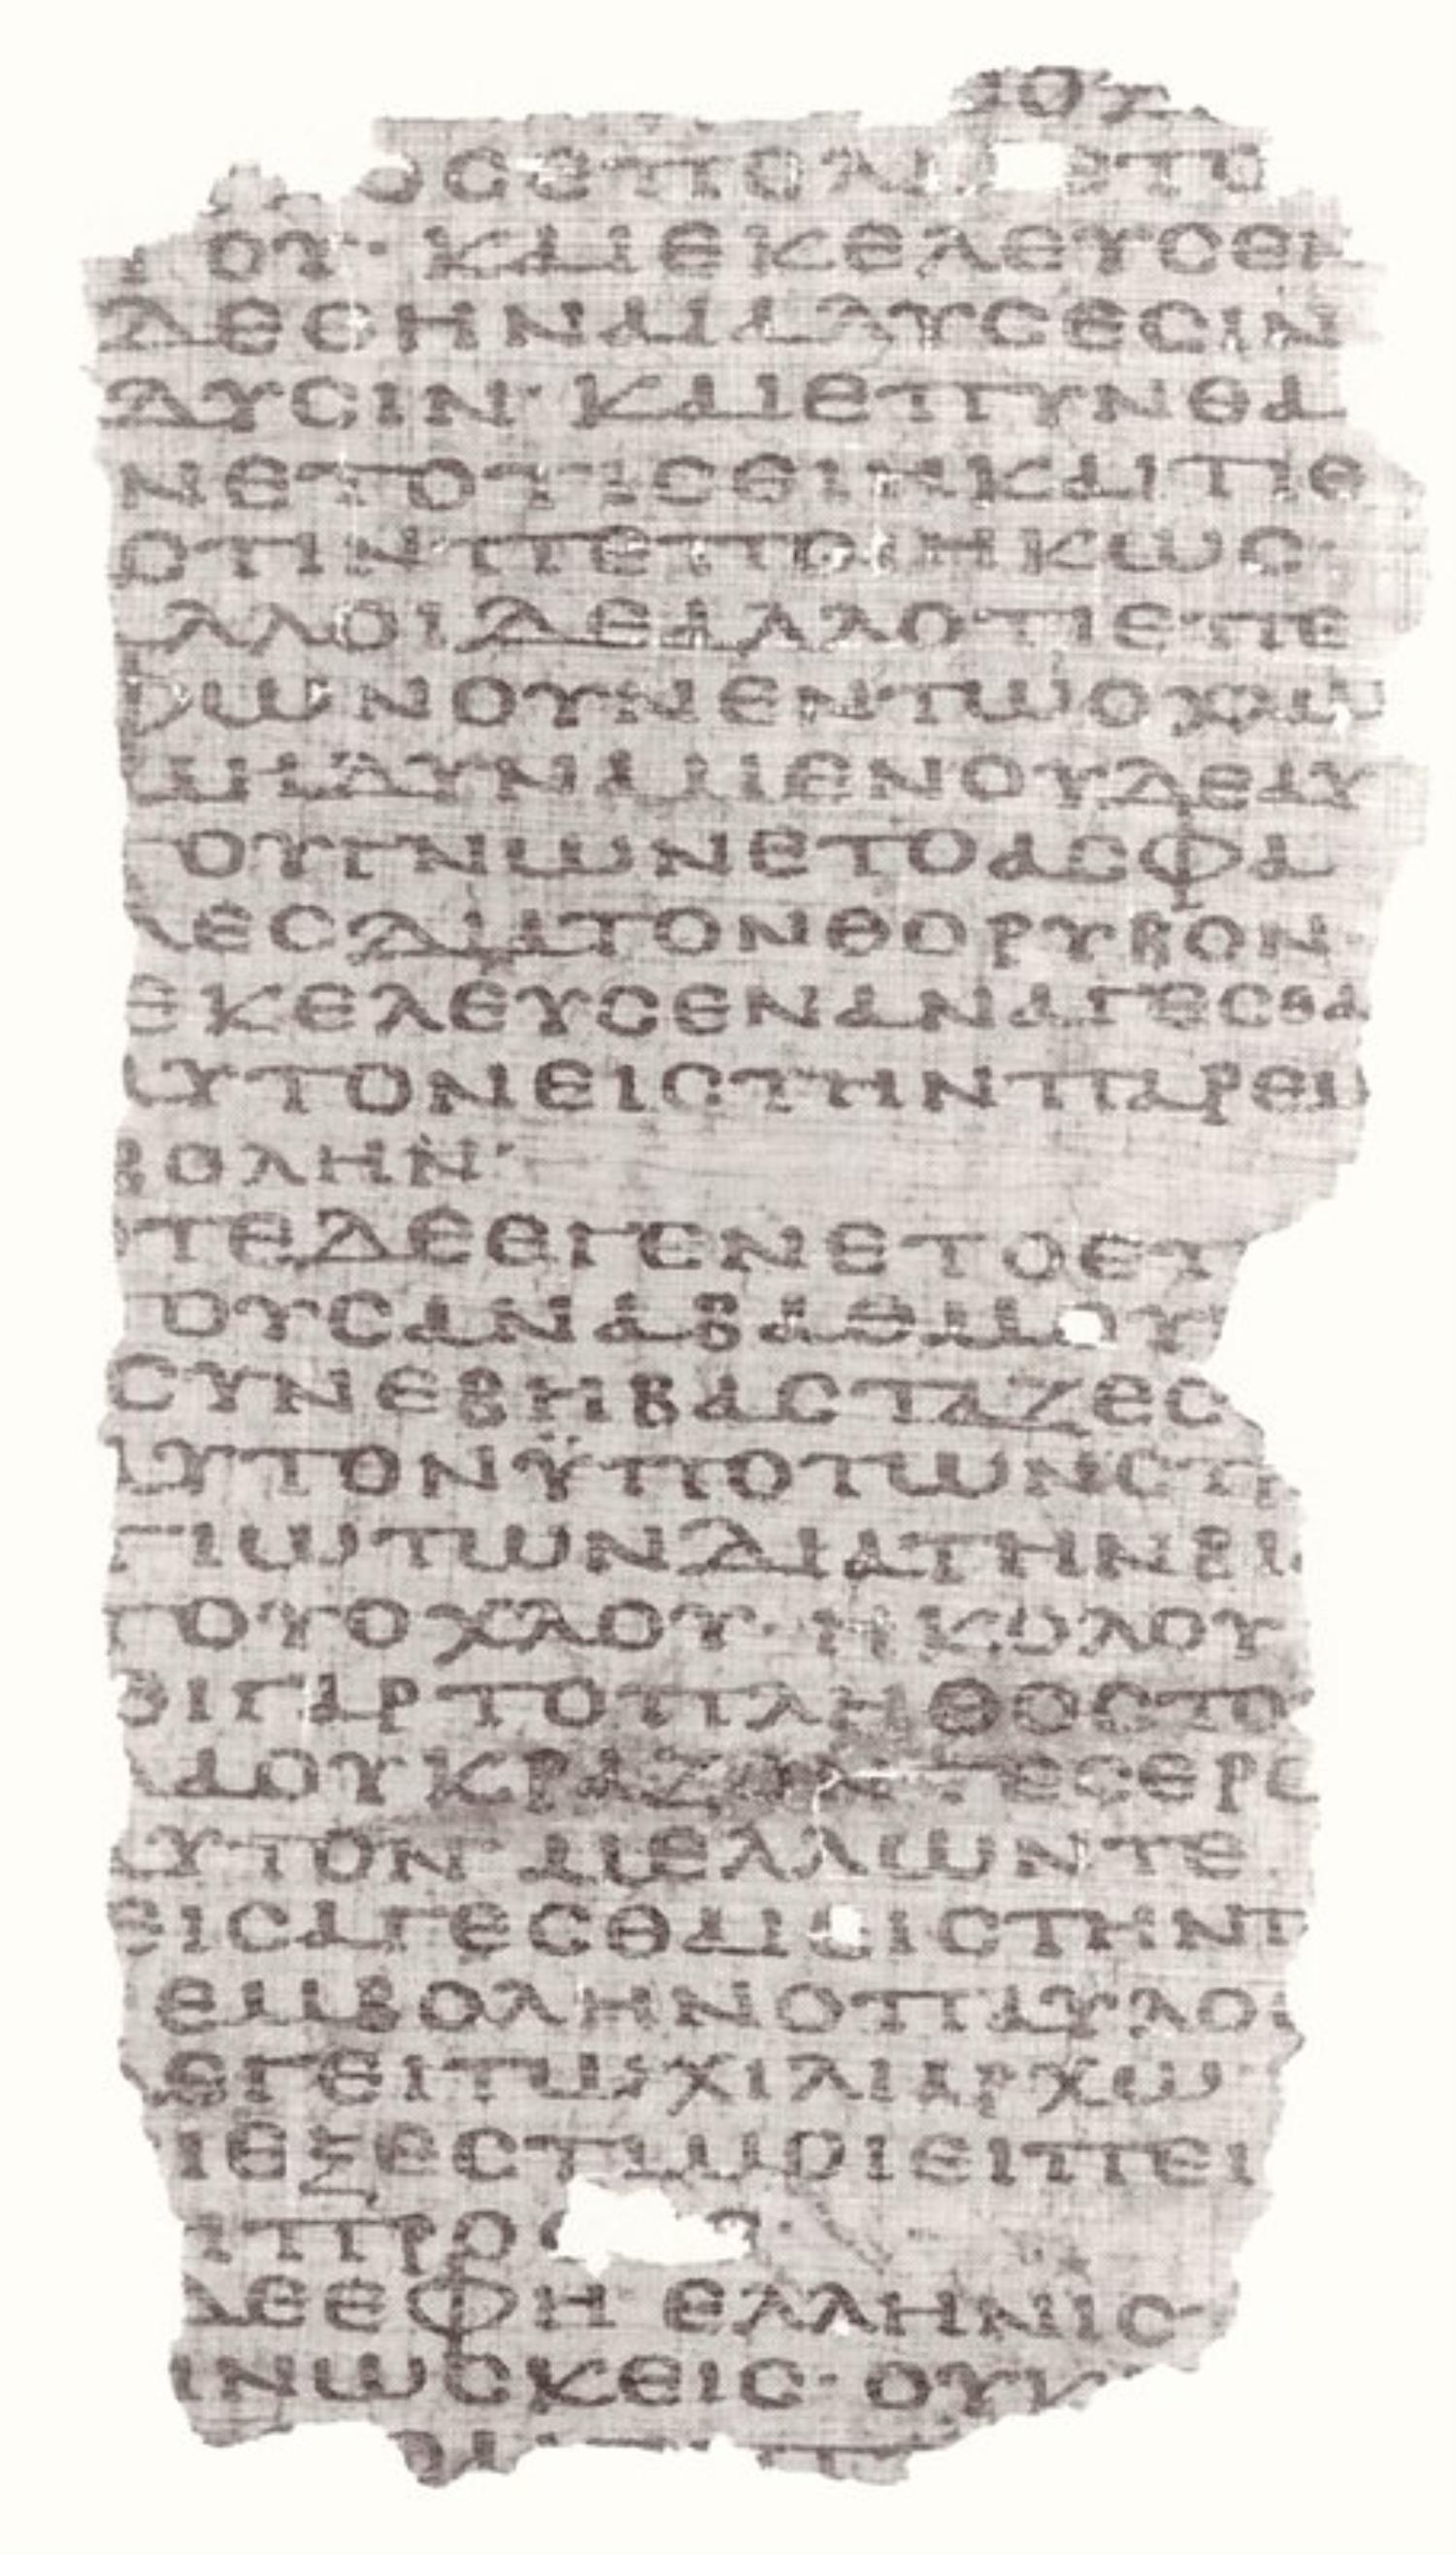 ΟϹΕΠΟΛ ΕΤΟ
ΤΟΥ· ΚΑΙΕΚΕΛΕΥϹΕΝ
ΔΕΘΗΝΑΙΑΛΥϹΕϹΙΝ
ΔΥϹΙΝ· ΚΑΙΕΠΥΝΘΑ
ΝΕΤΟΤΙϹΕΙΗΚΑΙΤΙΕ
ϹΤΙΝΠΕΠΟΙΗΚΩϹ·
ΑΛΛΟΙΔΕΑΛΛΟΤΙΕΠΕ
ΦΩΝΟΥΝΕΝΤΩΟΧΛΩ
ΜΗΔΥΝΑΜΕΝΟΥΔΕΑΥ
ΤΟΥΓΝΩΝΕΤΟΑϹΦΑ
ΛΕϹΔΙΑΤΟΝΘΟΡΥΒΟΝ·
ΕΚΕΛΕΥϹΕΝΑΝΑΓΕϹΘΑ
ΑΥΤΟΝΕΙϹΤΗΝΠΑΡΕΜ
ΒΟΛΗΝ·
ΟΤΕΔΕΕΓΕΝΕΤΟΕΠ
ΤΟΥϹΑΝΑΒΑΘΜΟΥ
ϹΥΝΕΒΗΒΑϹΤΑΖΕϹ
ΑΥΤΟΝΫΠΟΤΩΝϹΤΡ
ΤΙΩΤΩΝΔΙΑΤΗΝΒΙΑ
ΤΟΥΟΧΛΟΥ· ΗΚΟΛΟΥ
ΘΙΓΑΡΤΟΠΛΗΘΟϹΤΟΥ
ΛΑΟΥΚΡΑΖΟΝΤΕϹΕΡΕ
ΑΥΤΟΝ· ΜΕΛΛΩΝΤΕ
ΕΙϹΑΓΕϹΘΑΙΕΙϹΤΗΝΠ
ΕΜΒΟΛΗΝΟΠΑΥΛΟϹ
ΛΕΓΕΙΤΩΧΙΛΙΑΡΧΩ
ΙΕΞΕϹΤΙΜΟΙΕΙΠΕΙ
ΙΠΡΟϹ
ΔΕΕΦΗ ΕΛΛΗΝΙϹ
ΙΝΩϹΚΕΙϹ· ΟΥΚ